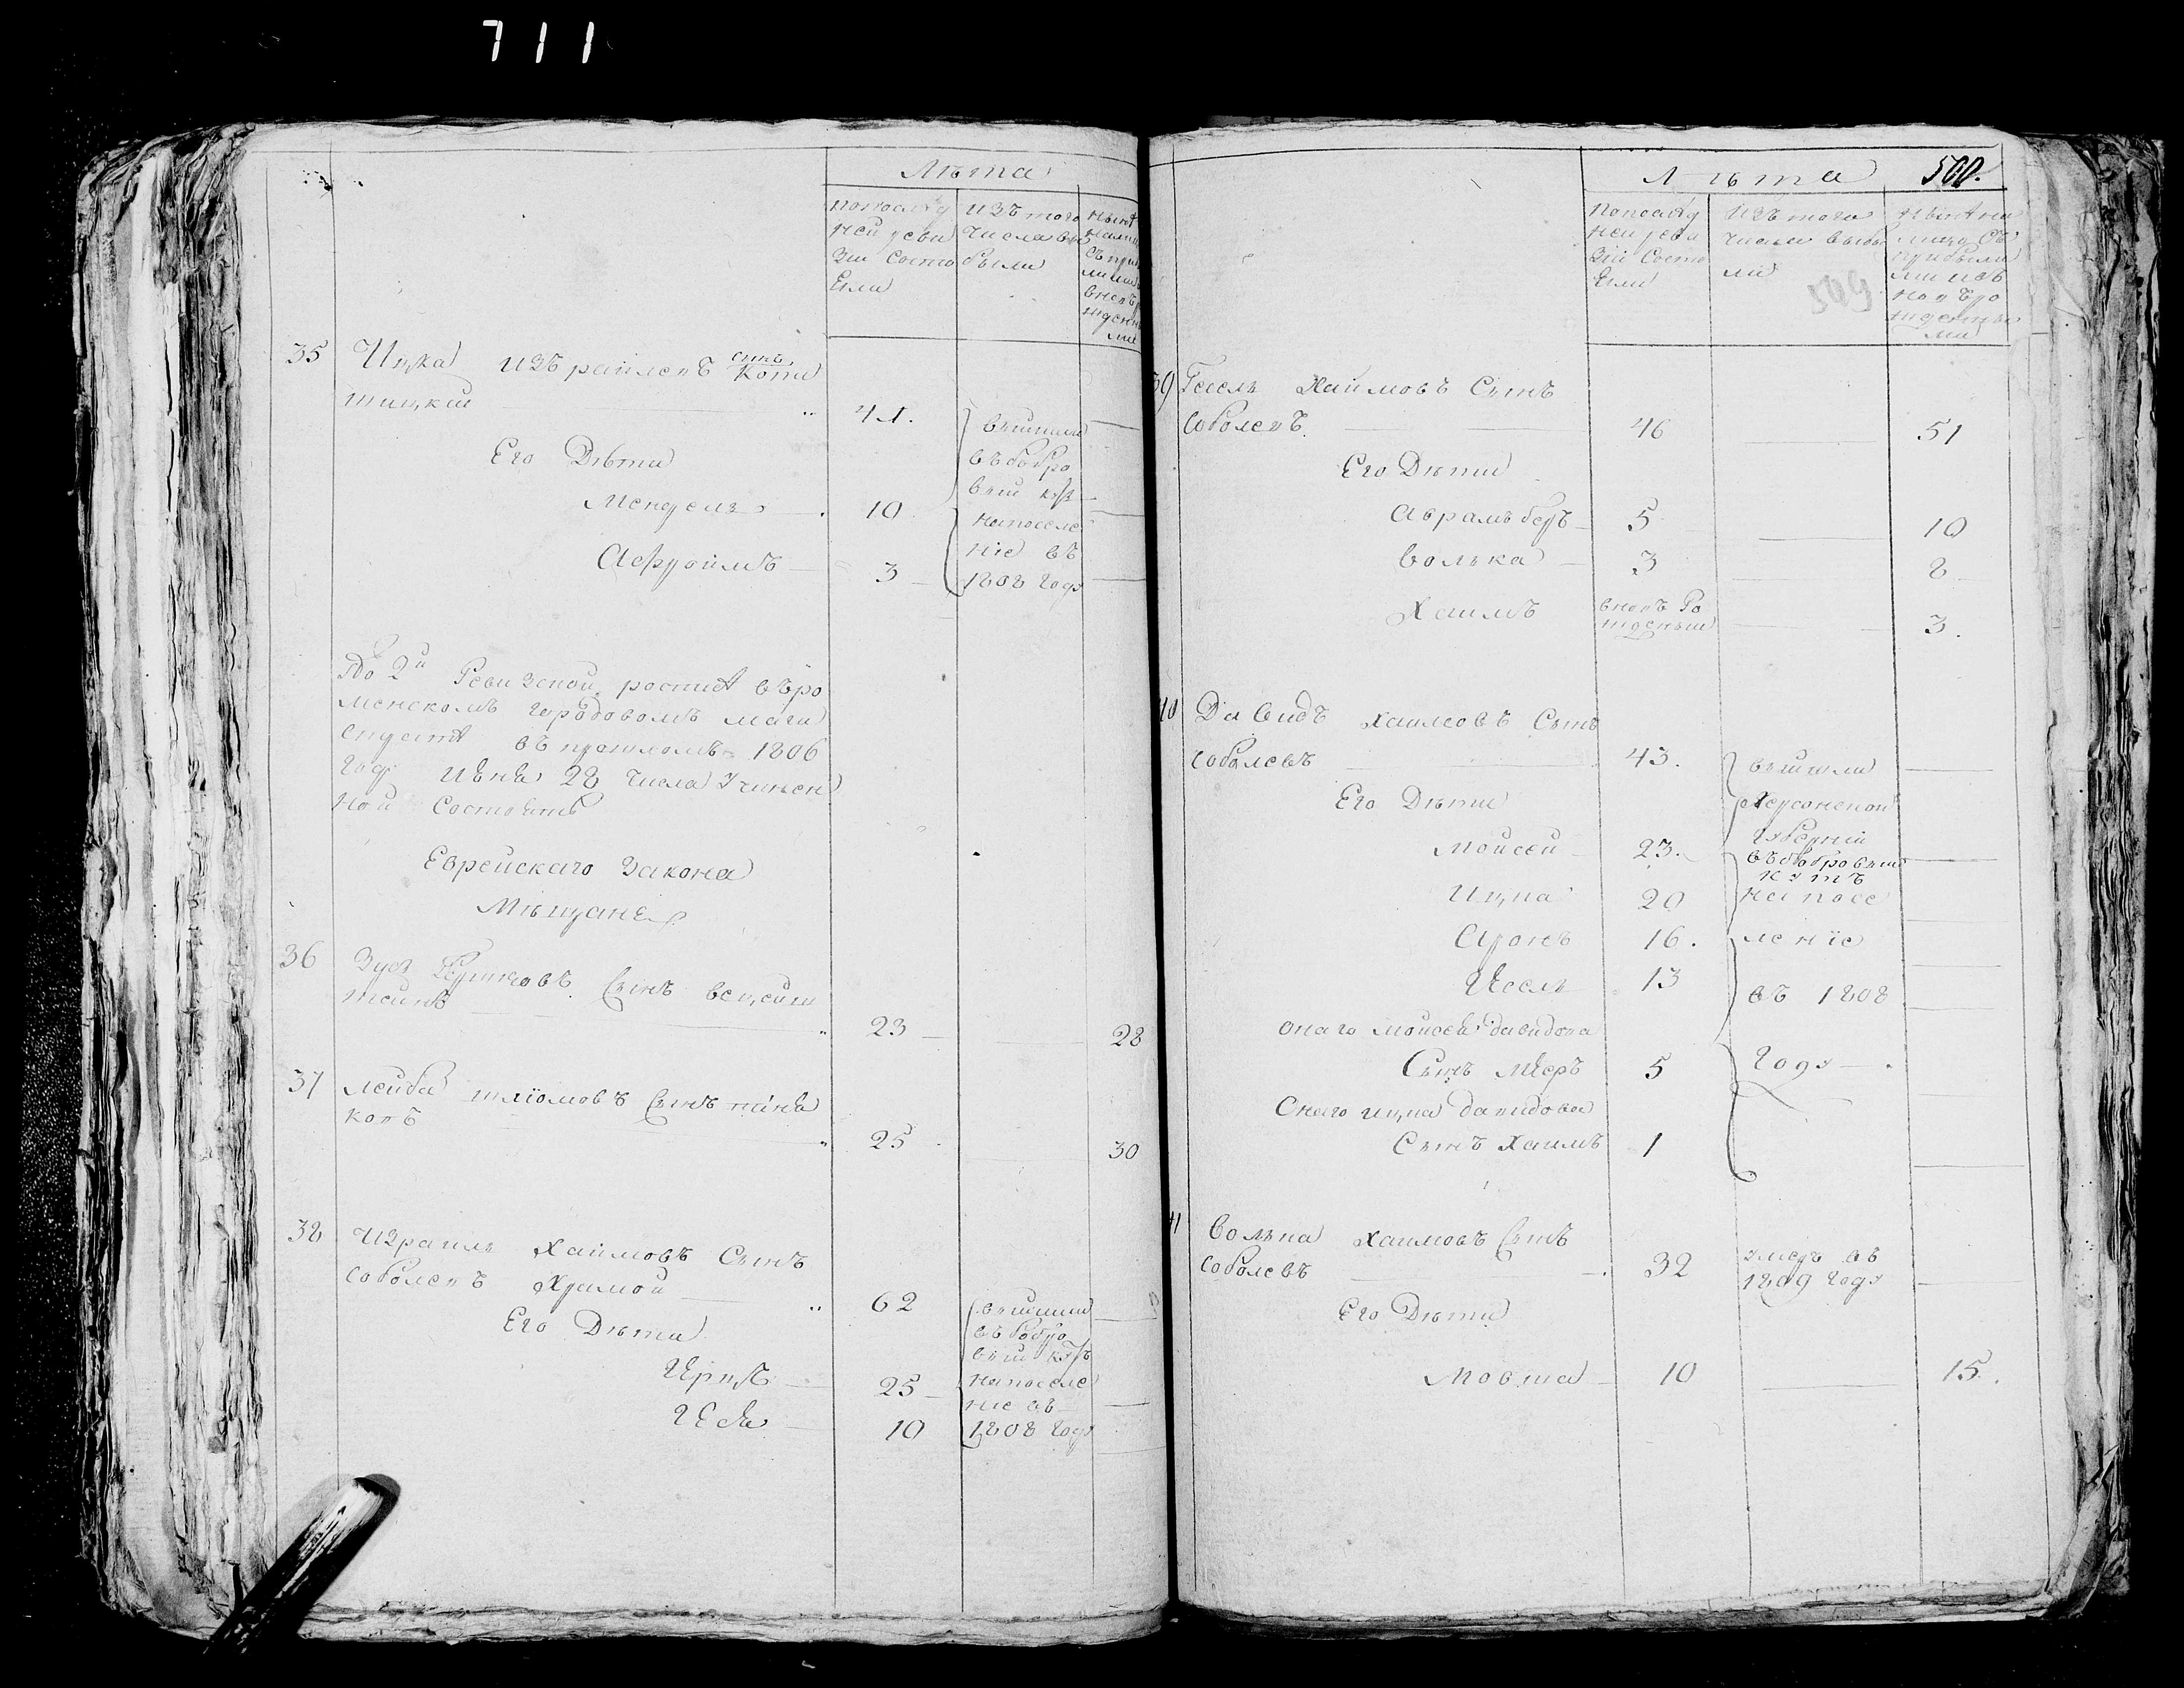 711
Лѣта
попослѣд
ней реви
зіи состо
яли
изъ того
числа вы
были
35 Ицка изъраилевъ сынъ Коти
шицкій 41.
вышли
въ бобро
вый кут
на поселе
ніе въ
1808 году
Его Дѣти
Мендель 10
Афроимъ 3
По 2й Ревизской росписѣ въ ро
менскомъ городовомъ маги
стратѣ въ прошломъ 1806
году 28 числа учинен
ной состоятъ
Еврейскаго закона
Мѣщане
36 сынъ
23 28
37 Лейба шліомовъ сынъ
ковъ
25 30
38 Израиль Хаимовъ Сынъ
соболевъ Хромой 62
вышли
въ бобро
вый кутъ
на поселе
ніе въ
1808 году
Его Дѣти
Ирцъ 25
10
Лѣта 500.
попослѣд
ней реви
зіи состо
яли
изъ того
числа выбы
ли
нынѣ на
лицо съ
прибыли
ми и съ
новъ ро
жденны
ми
509
39 Гесель Хаимовъ Сынъ
соболевъ 46 51
Его Дѣти
Аврамъ беръ 5 10
Волька 3 8
Хаимъ вновь Ро
жденный 3.
40 Давидъ Хаимовъ Сынъ
соболевъ 43.
вышли
Херсонской
губерніи
въ бобровый
кутъ
на посе
леніе
въ 1808
году
Его Дѣти
Мойсей 23.
Ицка 20
Аронъ 16.
Иосель 13
онаго мойсея давидова
Сынъ Меръ 5
Онаго ицка давидова
Сынъ Хаимъ 1
41 Волька Хаимовъ Сынъ
соболевъ 32 умеръ въ
1809 году
Его Дѣти
Мовша 10 15.